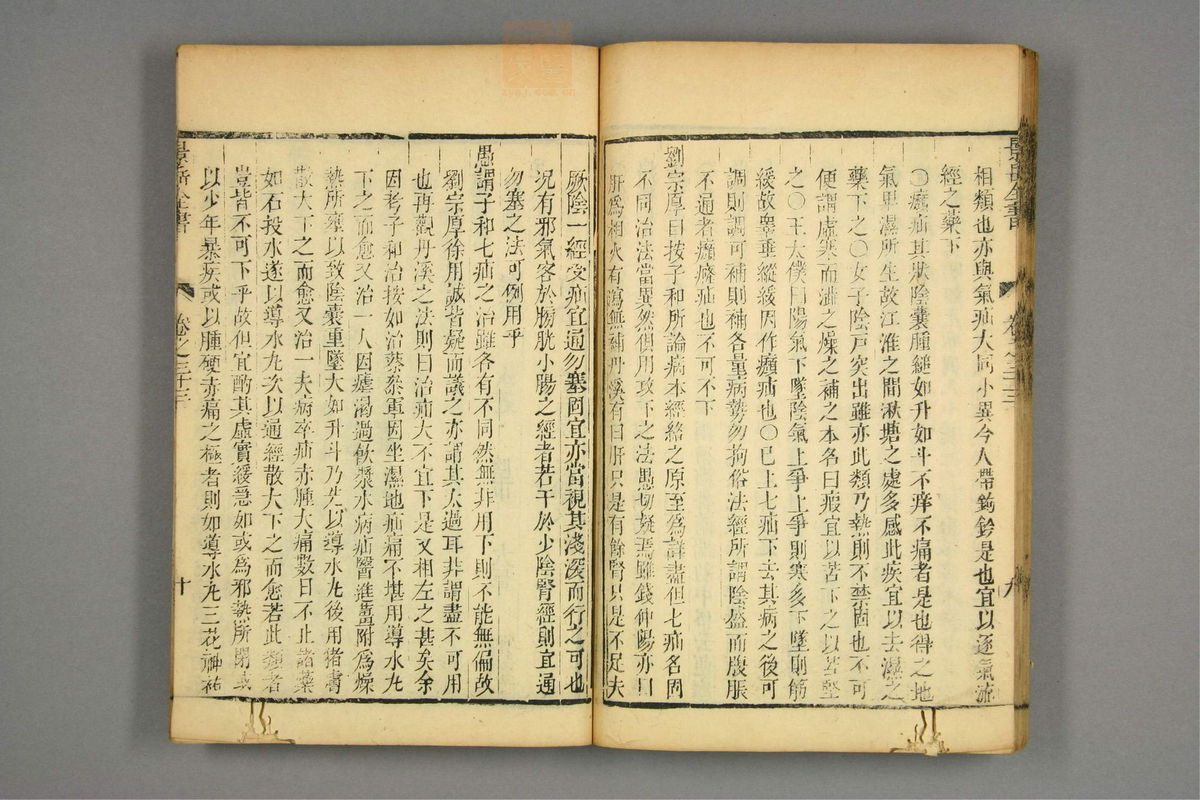 相類也亦與氣疝大同小異今人帶鉤鈐是也宜以逐氣流
經之藥下
○㿗疝其狀陰囊腫縋如升如斗不痒不痛者是也得之地
氣卑濕所生故江淮之間湫塘之處多感此疾宜以去濕之
藥下之○女子陰戶突出雖亦此類乃熱則不禁固也不可
便謂虛寒而澁之燥之補之本名曰瘕宜以苦下之以苦堅
之○王太僕曰陽氣下墜陰氣上爭上爭則寒多下墜則筋
緩故睪垂縱緩因作㿗疝也○巳上七疝下去其病之後可
調則調可補則補各量病勢勿拘俗法經所謂陰盛而腹脹
不通者㿗癃疝也不可不下
劉宗厚曰按子和所論病本經絡之原至為詳盡但七疝名固
不同治法當異然俱用攻下之法愚切疑焉雖錢仲陽亦曰
肝為相火有瀉無補丹溪有曰肝只是有餘腎只是不足夫
厥陰一經受疝宜通勿塞固宜亦當視其淺深而行之可也
況有邪氣客於膀胱小腸之經者若干於少陰腎經則宜通
勿塞之法可例用乎
愚謂子和七疝之治雖各有不同然無非用下則不能無偏故
劉宗厚徐用誠皆疑而議之亦謂其太過耳非謂盡不可用
也再觀丹溪之法則曰治疝大不宜下是又相左之甚矣余
因考子和治按如治蔡參軍因坐濕地疝痛不堪用導水丸
下之而愈又治一人因瘧渴過飲漿水病疝醫進薑附為燥
熱所壅以致陰囊重墜大如升斗乃先以導水丸後用猪腎
散大下之而愈又治一夫病卒疝赤腫大痛數日不止諸藥
如石投水遂以導水丸次以通經散大下之而愈若此類者
豈皆不可下乎故但宜酌其虛實緩急如或為邪熱所閉或
以少年暴疾或以腫硬赤痛之極者則如導水丸三花神祐
景岳全書
卷之三十三
十